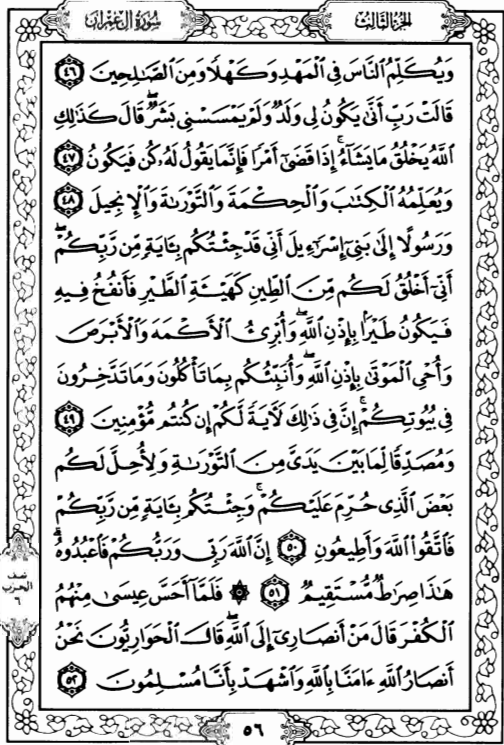 الجزء الثالث
سورة آل عمران
وَيُكَلِّمُ النَّاسَ فِي الْمَهْدِ وَكَهْلًا وَمِنَ الصَّٰلِحِينَ ٤٦
قَالَتْ رَبِّ أَنَّىٰ يَكُونُ لِي وَلَدٌ وَلَمْ يَمْسَسْنِي بَشَرٌ ۖ قَالَ كَذَٰلِكِ
اللَّهُ يَخْلُقُ مَا يَشَآءُ ۚ إِذَا قَضَىٰٓ أَمْرًا فَإِنَّمَا يَقُولُ لَهُۥ كُن فَيَكُونُ ٤٧
وَيُعَلِّمُهُ الْكِتَٰبَ وَالْحِكْمَةَ وَالتَّوْرَىٰةَ وَالْإِنجِيلَ ٤٨
وَرَسُولًا إِلَىٰ بَنِيٓ إِسْرَٰٓءِيلَ أَنِّي قَدْ جِئْتُكُم بِـَٔايَةٍ مِّن رَّبِّكُمْ ۖ
أَنِّيٓ أَخْلُقُ لَكُم مِّنَ الطِّينِ كَهَيْـَٔةِ الطَّيْرِ فَأَنفُخُ فِيهِ
فَيَكُونُ طَيْرًۢا بِإِذْنِ اللَّهِ ۖ وَأُبْرِئُ الْأَكْمَهَ وَالْأَبْرَصَ
وَأُحْيِ الْمَوْتَىٰ بِإِذْنِ اللَّهِ ۖ وَأُنَبِّئُكُم بِمَا تَأْكُلُونَ وَمَا تَدَّخِرُونَ
فِي بُيُوتِكُمْ ۚ إِنَّ فِي ذَٰلِكَ لَـَٔايَةً لَّكُمْ إِن كُنتُم مُّؤْمِنِينَ ٤٩
وَمُصَدِّقًا لِّمَا بَيْنَ يَدَيَّ مِنَ التَّوْرَىٰةِ وَلِأُحِلَّ لَكُم
بَعْضَ الَّذِي حُرِّمَ عَلَيْكُمْ ۚ وَجِئْتُكُم بِـَٔايَةٍ مِّن رَّبِّكُمْ
فَاتَّقُوا اللَّهَ وَأَطِيعُونِ ٥٠ إِنَّ اللَّهَ رَبِّي وَرَبُّكُمْ فَاعْبُدُوهُ ۗ
هَٰذَا صِرَٰطٌ مُّسْتَقِيمٌ ٥١ ۞ فَلَمَّآ أَحَسَّ عِيسَىٰ مِنْهُمُ
الْكُفْرَ قَالَ مَنْ أَنصَارِيٓ إِلَى اللَّهِ ۖ قَالَ الْحَوَارِيُّونَ نَحْنُ
أَنصَارُ اللَّهِ ءَامَنَّا بِاللَّهِ وَاشْهَدْ بِأَنَّا مُسْلِمُونَ ٥٢
نصف
الحزب
٦
٥٦